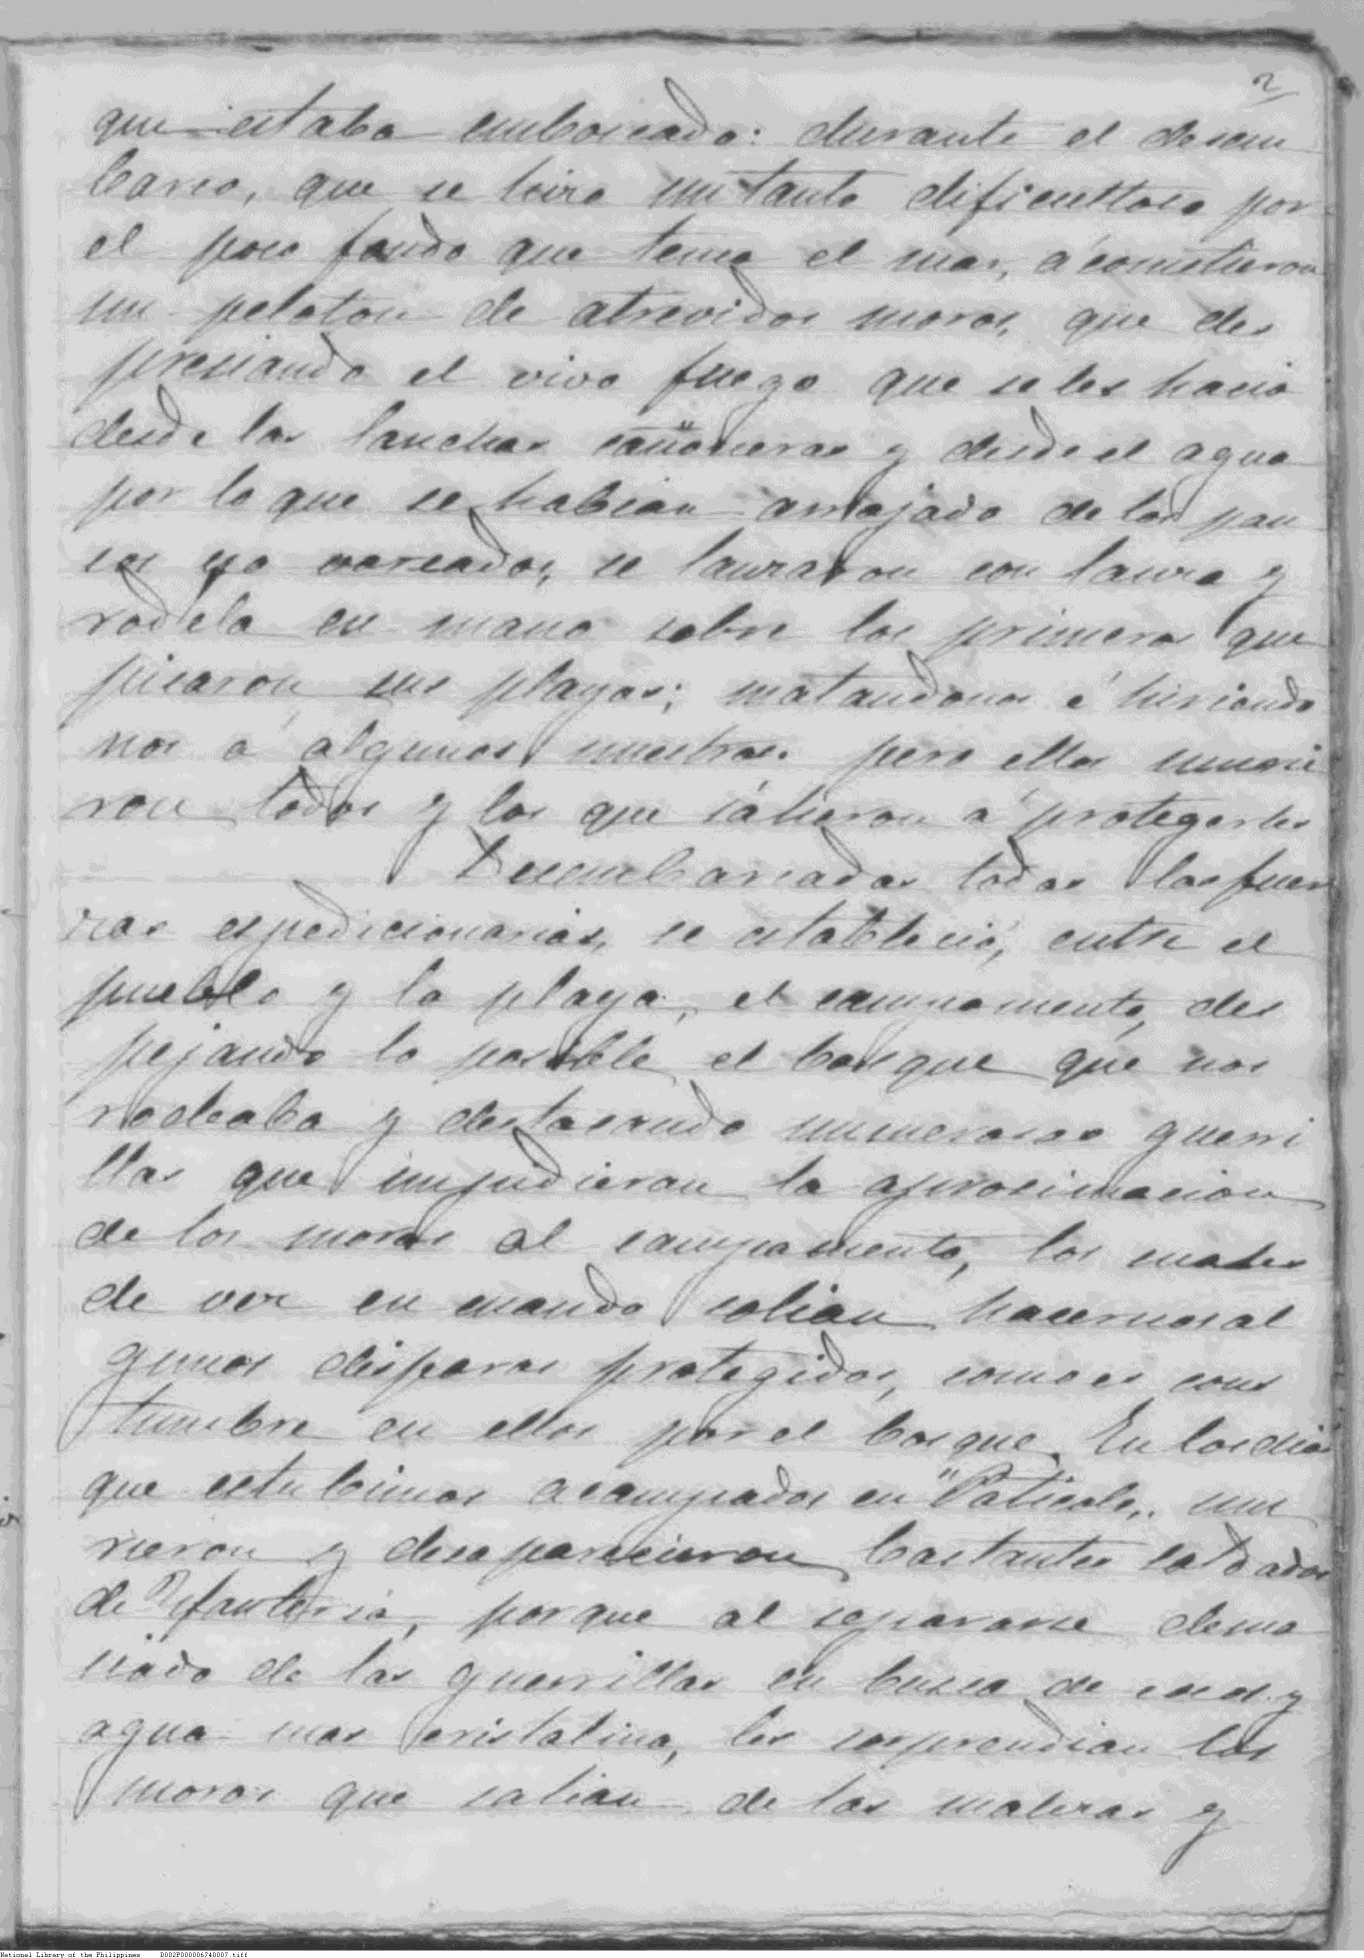 2
que estaba emboscado: durante el desem
barco, que se hizo un tanto dificultoso por
el poco fondo que tenia el mar, acometieron
un peloton de atrevidos moros, que des
preciando el vivo fuego que se les hacia
desde las lanchas cañoneras y desde el agua
por lo que se habian arrojado de los pan
cos ya varcados, se lanzaron con lanza y
rodela en mano sobre los primeros que
pisaron sus playas; matandonos é hiriendo
nos á algunos nuestros. pero ellos murie
ron todos y los que salieron á protegerles
Desembarcadas todas las fuer
zas espedicionarias, se estableció, entre el
pueblo y la playa, el campamento, des
pejando lo posible el bosque que nos
rodeaba y destacando numerosas guerri
llas que impidieron la aprosimacion
de los moros al campamento, los cuales
de vez en cuando solian hacernos al
gunos disparos protegidos, como es cons
tumbre en ellos por el bosque. En los dias
que estubimos acampados en "Paticolo,, mu
rieron y desaparecieron bastantes soldados
de Ynfanteria, porque al separarse dema
siado de las guerrillas en busca de cocos y
agua mas cristalina, les sorprendian los
moros que salian de las malezas y
National Library of the Philippines D002P000006740007.tiff